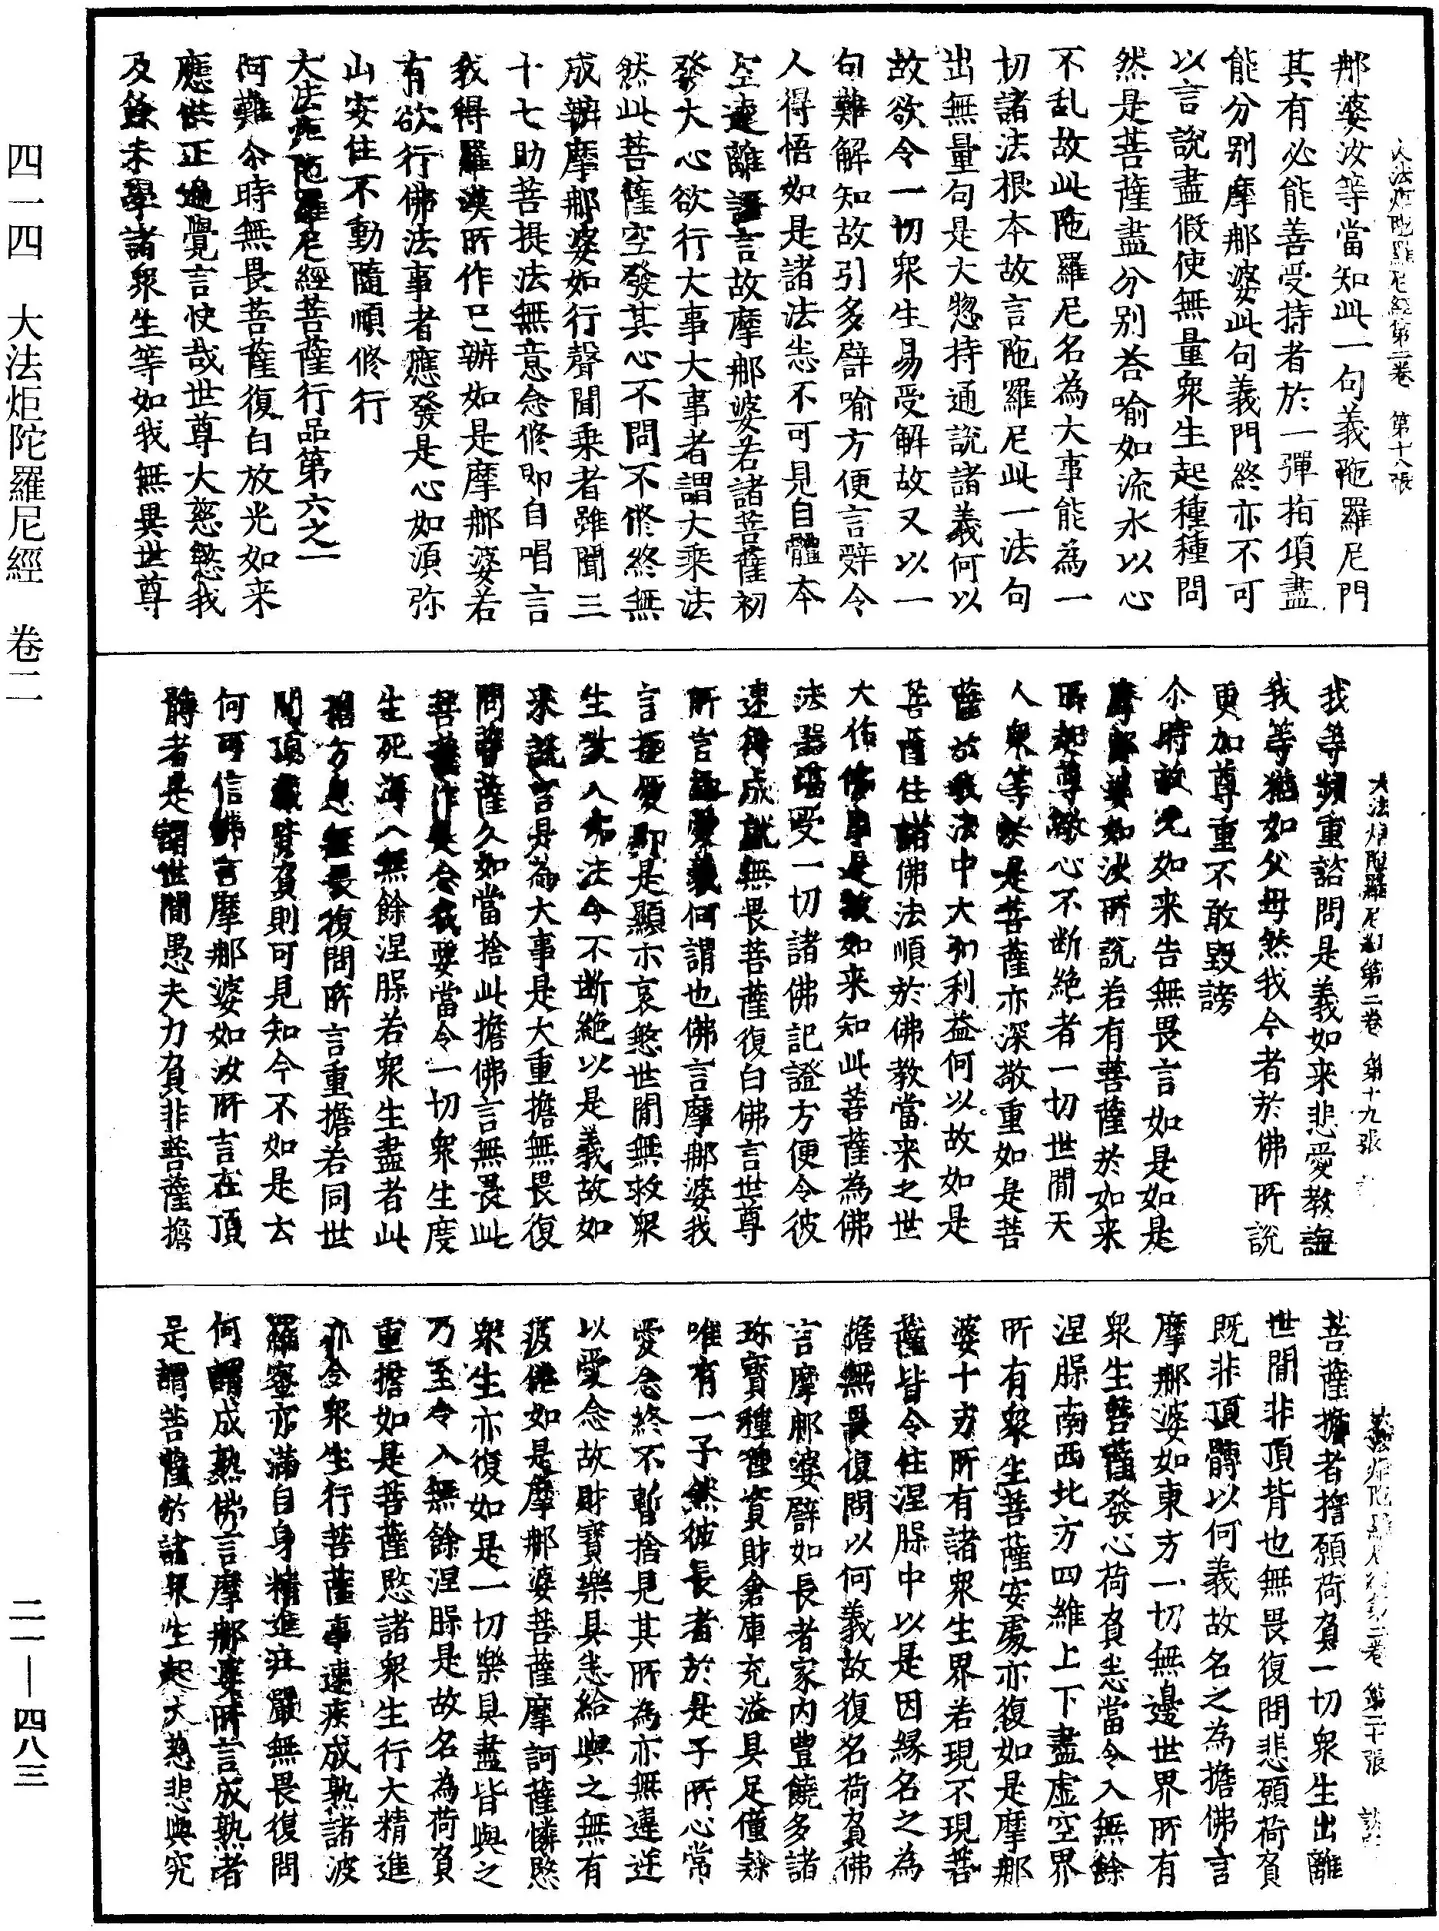 大法炬陀羅尼經第二卷 第十八張
那婆汝等當知此一句義陁羅尼門
其有必能善受持者於一彈指頃盡
能分别摩那婆此句義門終亦不可
以言說盡假使無量衆生起種種問
然是菩薩盡分别荅喻如流水以心
不乱故此陁羅尼名為大事能為一
切諸法根本故言陁羅尼此一法句
出無量句是大惣持通說諸義何以
故欲令一切衆生易受解故又以一
句難解知故引多辟喻方便言辭令
人得悟如是諸法悉不可見自體本
空遠離語言故摩那婆若諸菩薩初
發大心欲行大事大事者謂大乘法
然此菩薩空發其心不問不修終無
成辦摩那婆如行聲聞乘者雖聞三
十七助菩提法無意念修即自唱言
我得羅漢所作已辦如是摩那婆若
有欲行佛法事者應發是心如須弥
山安住不動隨順修行
大法炬陁羅尼經菩薩行品第六之一
阿難尒時無畏菩薩復白放光如来
應供正遍覺言快哉世尊大慈愍我
及餘未學諸衆生等如我無異世尊
大法炬陁羅尼經第二卷 第十九張
我等頻重諮問是義如来悲愛教誨
我等猶如父母然我今者於佛所說
更加尊重不敢毀謗
尒時放光如来告無畏言如是如是
摩那婆如汝所說若有菩薩於如来
所起尊敬心不断絶者一切世間天
人衆等於是菩薩亦深敬重如是菩
薩於我法中大作利益何以故如是
菩薩住諸佛法順於佛教當来之世
大作佛事是故如来知此菩薩為佛
法器堪受一切諸佛記證方便令彼
速得成就無畏菩薩復白佛言世尊
所言極愛義何謂也佛言摩那婆我
言極愛即是顯示哀愍世間無救衆
生故入布法令不断絶以是義故如
来說言是為大事是大重擔無畏復
問菩薩久如當捨此擔佛言無畏此
菩薩作是念我要當令一切衆生度
生死海入無餘涅脲若衆生盡者此
擔方息無畏復問所言重擔若同世
間頂戴背負則可見知今不如是云
何可信佛言摩那婆如汝所言在頂
髆者是謂世間愚夫力負非菩薩擔
大法炬陁羅尼經第二卷 第二十張
菩薩擔者擔願荷負一切衆生出離
世間非頂背也無畏復問悲願荷負
既非頂髆以何義故名之為擔佛言
摩那婆如東方一切無邊世界所有
衆生菩薩發心荷負悉當令入無餘
涅脲南西北方四維上下盡虛空界
所有衆生菩薩安處亦復如是摩那
婆十方所有諸衆生界若現不現菩
薩皆令住涅脲中以是因緣名之為
擔無畏復問以何義故復名荷負佛
言摩那婆辟如長者家內豊饒多諸
珎寳種種資財倉庫充溢具足僮㒒
唯有一子然彼長者於是子所心常
愛念終不暫捨見其所為亦無違迕
以愛念故財寳樂具悉給與之無有
疲惓如是摩那婆菩薩摩訶薩憐愍
衆生亦復如是一切樂具盡皆與之
乃至令入無餘涅脲是故名為荷負
重擔如是菩薩愍諸衆生行大精進
亦令衆生行菩薩事速疾成熟諸波
羅蜜亦滿自身精進莊嚴無畏復問
何謂成熟佛言摩那婆所言成熟者
是謂菩薩於諸衆生起大慈悲與究
四一四 大法炬陀羅尼經 卷二
二一—四八三